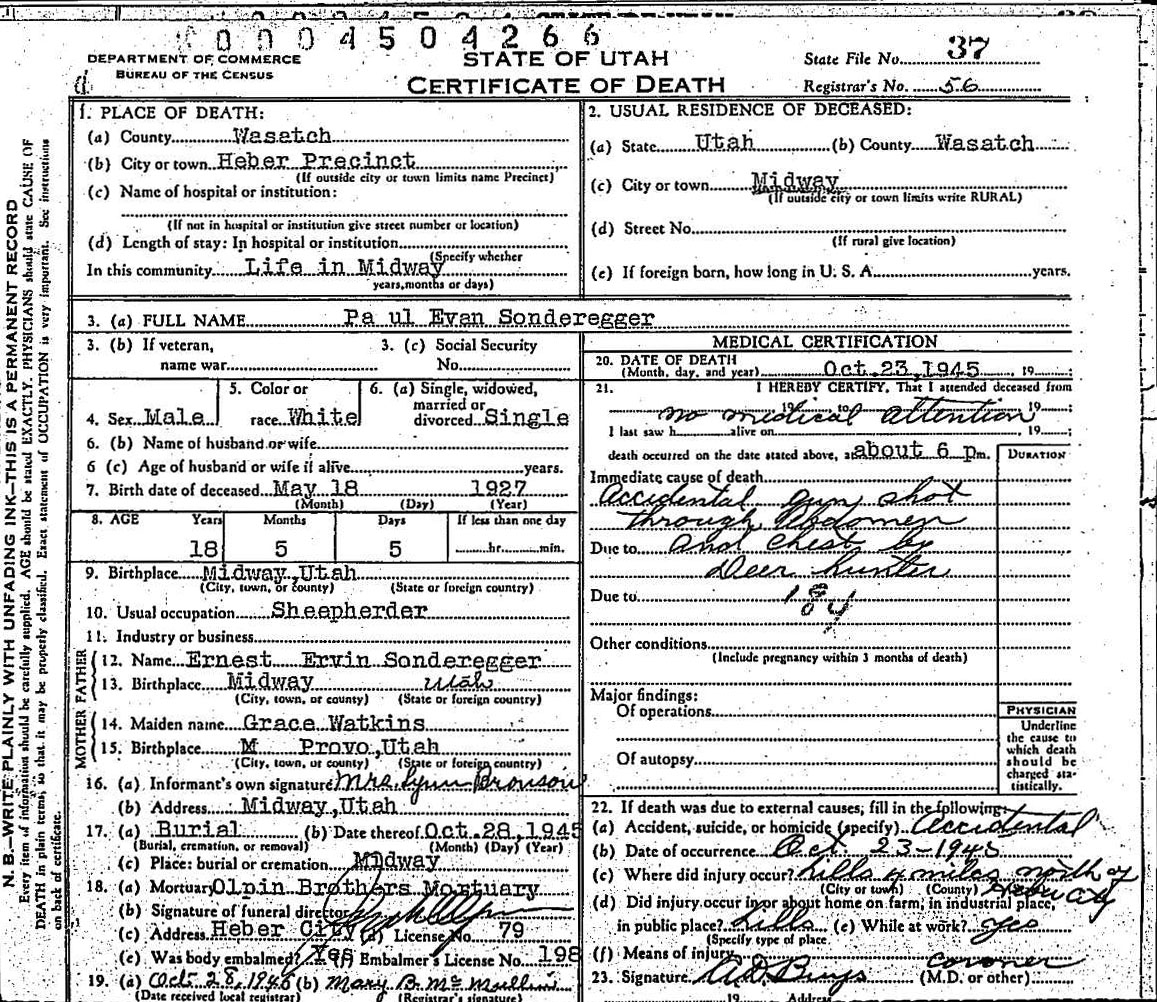 0004504266
DEPARTMENT OF COMMERCE
BUREAU OF THE CENSUS
STATE OF UTAH
CERTIFICATE OF DEATH
State File No. 37
Registrar's No. 56
N. B.—WRITE PLAINLY WITH UNFADING INK—THIS IS A PERMANENT RECORD
Every item of information should be carefully supplied. AGE should be stated EXACTLY. PHYSICIANS should state CAUSE OF
DEATH in plain terms, so that it may be properly classified. Exact statement of OCCUPATION is very important. See instructions
on back of certificate.
1. PLACE OF DEATH:
(a) County Wasatch
(b) City or town Heber Precinct
(If outside city or town limits name Precinct)
(c) Name of hospital or institution:
(If not in hospital or institution give street number or location)
(d) Length of stay: In hospital or institution
(Specify whether
In this community Life in Midway
years, months or days)
2. USUAL RESIDENCE OF DECEASED:
(a) State Utah (b) County Wasatch
(c) City or town Midway
(If outside city or town limits write RURAL)
(d) Street No.
(If rural give location)
(e) If foreign born, how long in U. S. A. years.
3. (a) FULL NAME Pa ul Evan Sonderegger
3. (b) If veteran,
name war
3. (c) Social Security
No.
4. Sex Male
5. Color or
race White
6. (a) Single, widowed,
married or
divorced Single
6. (b) Name of husband or wife
6 (c) Age of husband or wife if alive years.
7. Birth date of deceased May 18 1927
(Month) (Day) (Year)
8. AGE Years Months Days If less than one day
18 5 5 hr. min.
9. Birthplace Midway, Utah
(City, town, or county) (State or foreign country)
10. Usual occupation Sheepherder
11. Industry or business
FATHER
12. Name Ernest Ervin Sonderegger
13. Birthplace Midway Utah
(City, town, or county) (State or foreign country)
MOTHER
14. Maiden name Grace Watkins
15. Birthplace M Provo, Utah
(City, town, or county) (State or foreign country)
16. (a) Informant's own signature Mrs. Lynn Bronson
(b) Address Midway, Utah
17. (a) Burial (b) Date thereof Oct. 28, 1945
(Burial, cremation, or removal) (Month) (Day) (Year)
(c) Place: burial or cremation Midway
18. (a) Mortuary Olpin Brothers Mortuary
(b) Signature of funeral director
(c) Address Heber City (d) License No. 79
(e) Was body embalmed? Yes Embalmer's License No. 198
19. (a) Oct. 28, 1945 (b) Mary B. McMullin
(Date received local registrar) (Registrar's signature)
MEDICAL CERTIFICATION
20. DATE OF DEATH
(Month, day, and year) Oct. 23, 1945, 19
21. I HEREBY CERTIFY, That I attended deceased from
19 to 19
no medical attention
I last saw h alive on , 19 ;
death occurred on the date stated above, at about 6 pm.
DURATION
Immediate cause of death
Accidental gun shot
through Abdomen
Due to and chest by
Deer hunter
Due to 184
Other conditions
(Include pregnancy within 3 months of death)
Major findings:
Of operations
Of autopsy
PHYSICIAN
Underline
the cause to
which death
should be
charged sta-
tistically.
22. If death was due to external causes, fill in the following:
(a) Accident, suicide, or homicide (specify) Accidental
(b) Date of occurrence Oct. 23-1945
(c) Where did injury occur? hills 4 miles north of
(City or town) (County) Heber City
(d) Did injury occur in or about home on farm, in industrial place,
in public place? hills (e) While at work? yes
(Specify type of place
(f) Means of injury
coroner
23. Signature (M.D. or other)
19 Address